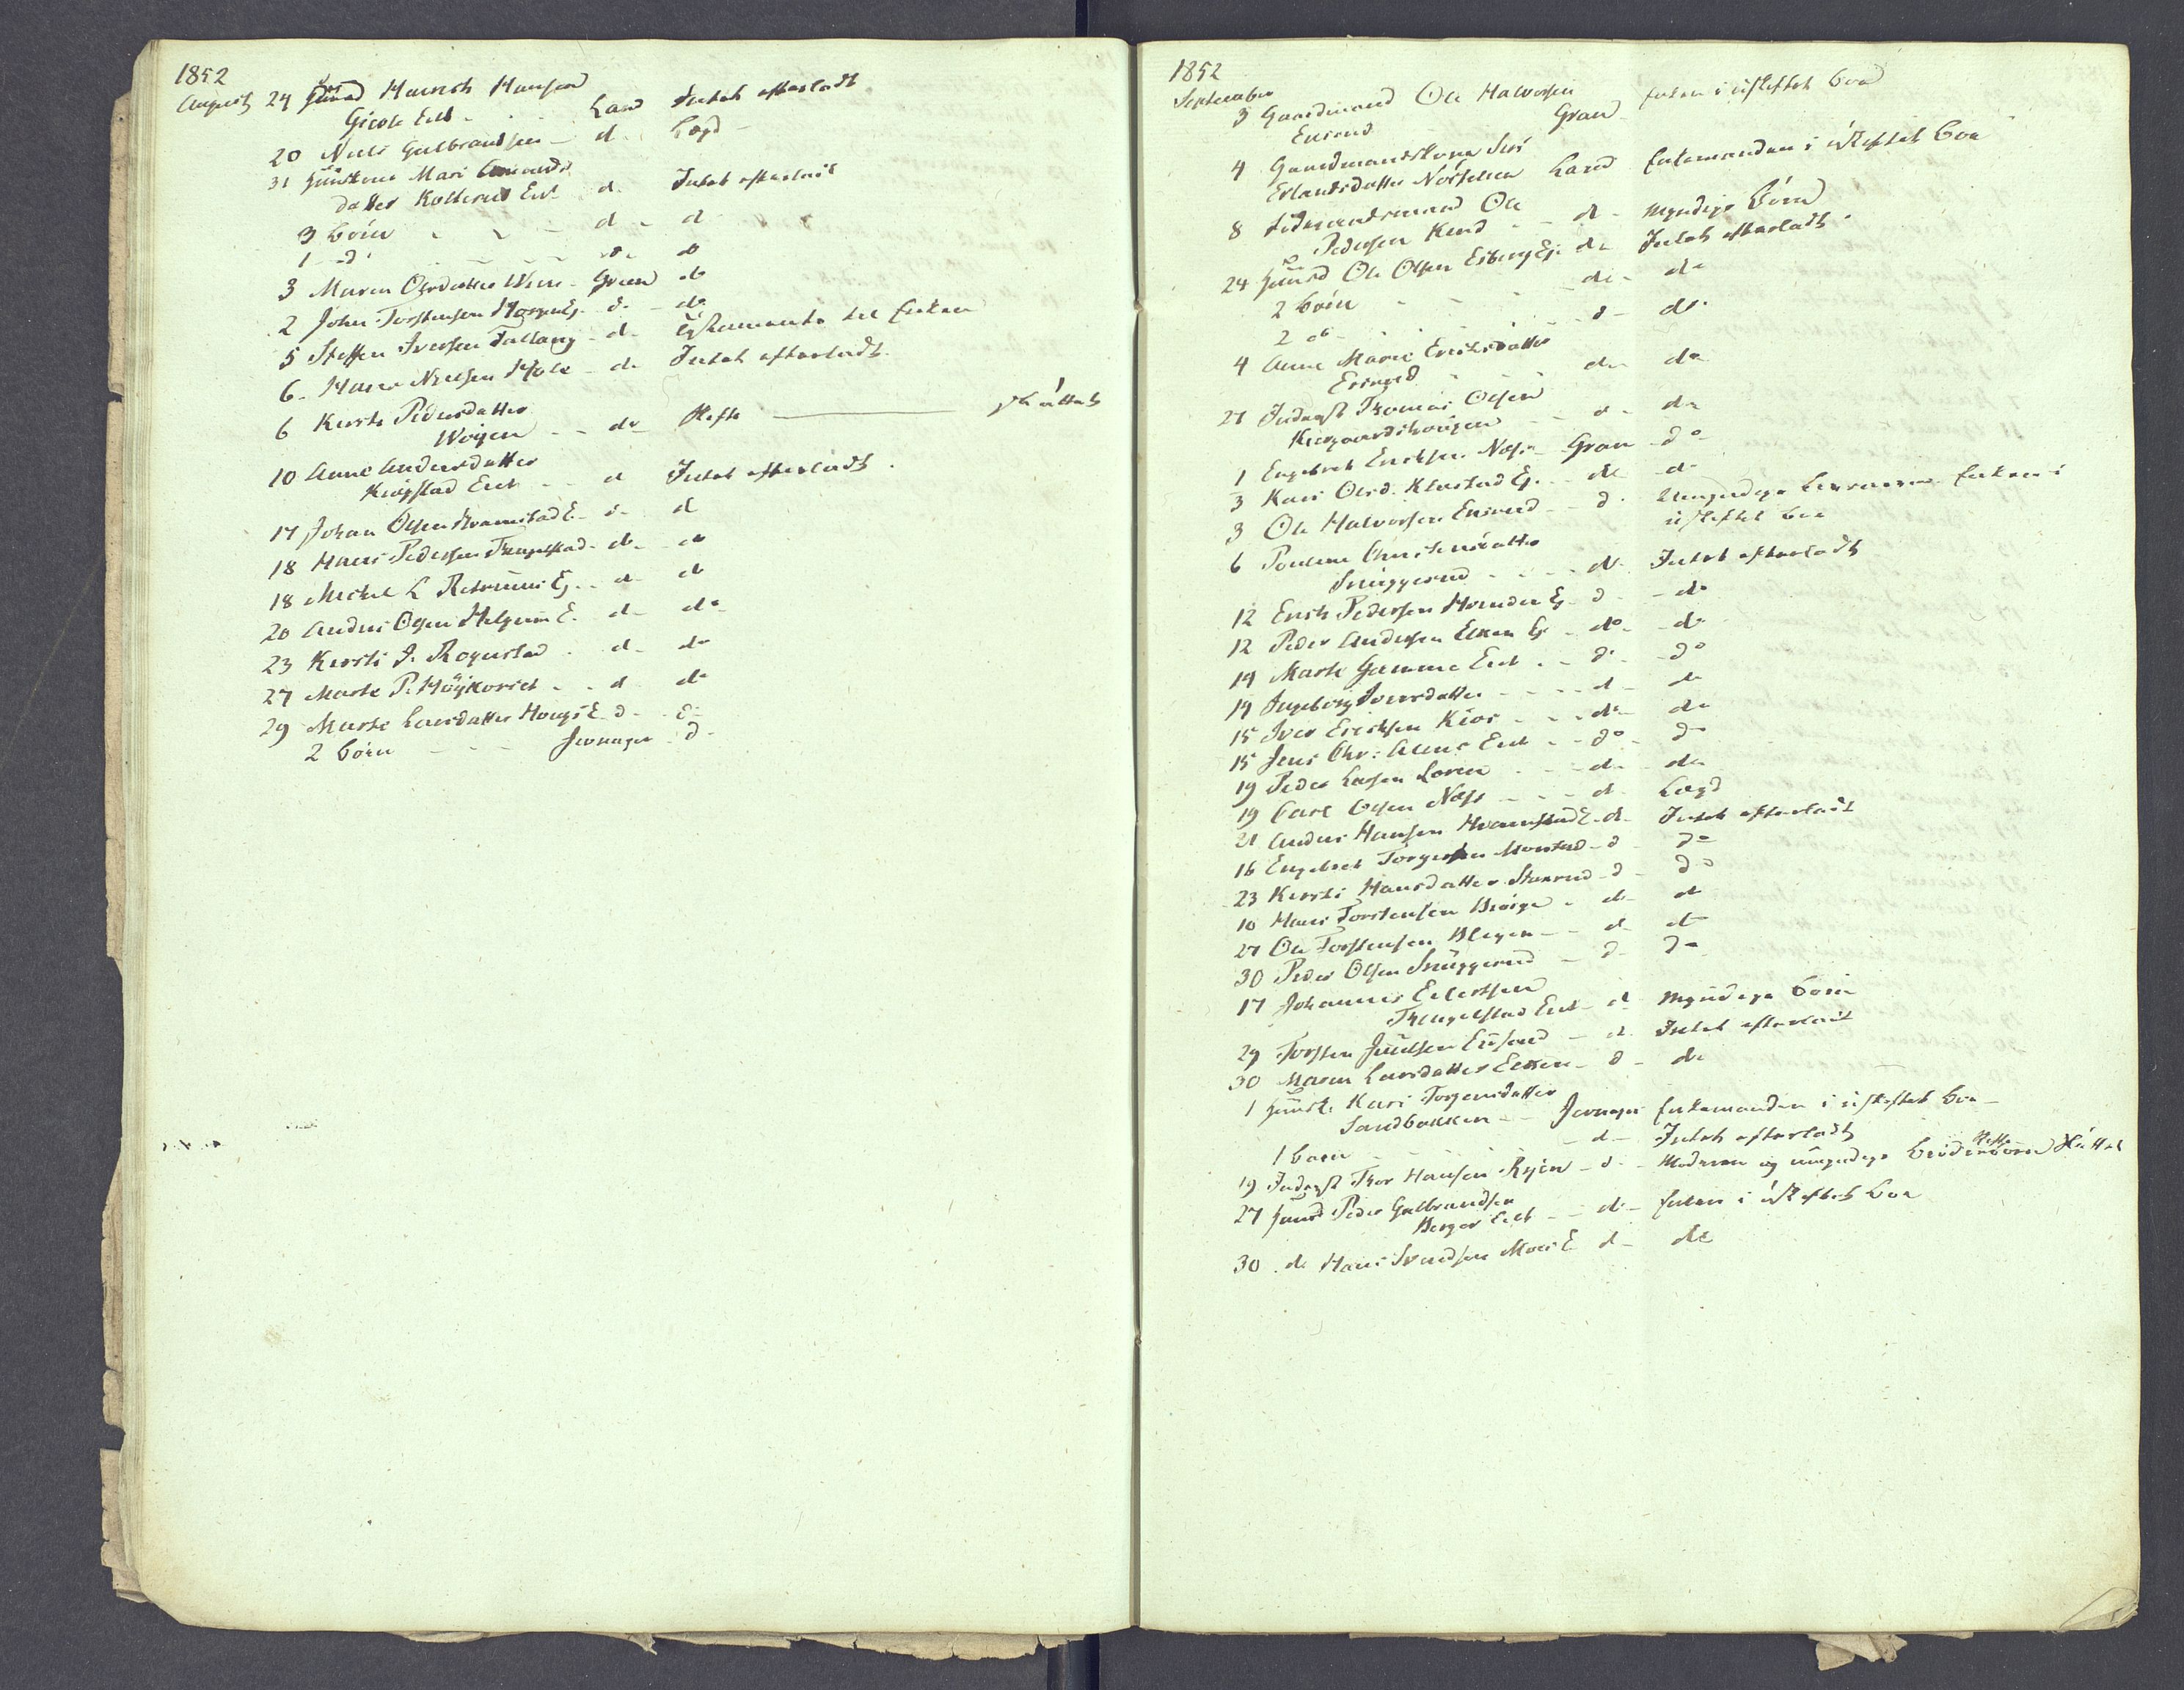 1852
August 24 Huusmd Henrik Hansen
Gisle Eiet - Land Intet efterladt
20 Niels Gulbrandsen - d Lægd -
31 Huuskone Mari Amunds
datter Kolkerud Eiet d. Intet efterladt
3 børn - - - d - d
1 d - - - d - d
3 Maren Olsdatter Wien - Gran do
2 John Torstensen Hagen Ej. d. - do
5 Steffen Iversen Tallang - d. Testamente til Enken
6. Hans Nielsen Hole - do Intet efterladt.
6 Kirsti Pedersdatter
Woyen - - do Skifte sluttet
10 Anne Andersdatter
Kiøgstad Eiet - - d Intet efterladt.
17 Johan Olsen Hvamstad E. d. d
18 Hans Pedersen Tingelstad - do - do
18 Michel L Retrum Ej. - d. d
20 Anders Olsen Helgum E. d. do
23 Kirsti J. Rognstad - d. do
27 Marte P. Høykorset - - d do
29 Marte Larsdatter Haugs E. d. d.
2 børn - - - Jevnager d -
1852
September
3 Gaardmand Ole Halvorsen Enken i uskiftet boe
Enerud Gran
4 Gaardmandskone Siri
Erlandsdatter Land Enkemanden i uskiftet boe
8 Ledemandsmand Ole
Pedersen Rud - do - myndige Børn
24 Huusmd Ole Olsen Esberg Ej. do Intet efterladt.
2 børn - - - do - do
2 do - - - d - do
4 Anne Marie Eriksdatter
Enerud - - - do - do
21 Inderst Thomas Olsen
Kiergaardshougen - - d - do
1 Engebret Eriksen Næss - Gran - do -
3 Kari Olsd. Klæstad Ej. - do - d
3 Ole Halvorsen Enerud - - d. Enken i
uskiftet boe
6 Pouline Christensdatter
Snuggerud - - - do Intet efterladt
12 Erik Pedersen Hvinden Ej. d. - do
12 Peder Andersen Ecker Ej - do - do
14 Marte Gamme Eiet - - d. - do
14 Ingeborg Iversdatter - - - d - do
15 Iver Ericksen Kios - - - do - do
15 Jens Chr: Alms Eiet - - do - do
19 Peder Larsen Loren - - do - do
19 Carl Olsen Næss - - - d. Lægd
21 Anders Hansen Hvamstad E. d. Intet efterladt
16 Engebret Torgersen Morstad - d - do
23 Kirsti Hansdatter Stenrud - d - do
10 Hans Torstensen Broige - do - do
27 Ole Torstensen Blegen - - d. do
30 Peder Olsen Snuggerud - d. do
17 Johannes Eilertsen
Tingelstad Eiet - d. myndige børn
29 Torsten Juulsen - d. Intet efterladt
30 Maren Larsdatter Ecker - d - do
1 Huusk. Kari Torgersdatter
Sandbakken - - Jevnager Enkemanden i uskiftet boe -
1 barn - - - d - Intet efterladt
19 Inderst Thor Hansen Ryen - d. - Moderen og umyndige Broderbørn Skifte sluttet
27 Huusmd Peder Gulbrandsen
Berger Eiet - - do - Enken i uskiftet boe
30 do Hans Svendsen Moe E. d - do